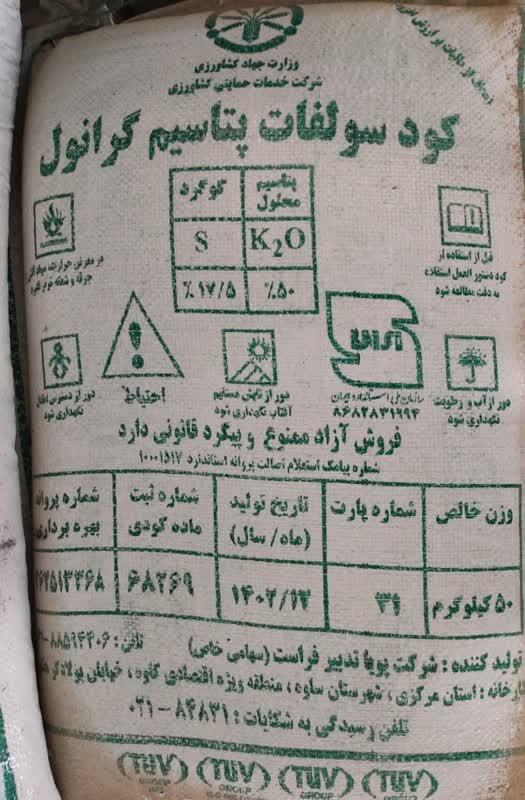 معاف از مالیات بر ارزش افزوده
وزارت جهاد کشاورزی
شرکت خدمات حمایتی کشاورزی
کود سولفات پتاسیم گرانول
پتاسیم محلول
گوگرد
K2O
S
٪۵۰
٪۱۷/۵
قبل از استفاده از
کود دستور العمل استفاده
به دقت مطالعه شود
در معرض حرارت، مواد
جرقه و شعله قرار نگیرد
دور از دسترس اطفال
نگهداری شود
احتیاط
دور از تابش مستقیم
آفتاب نگهداری شود
سازمان ملی استاندارد ایران
۸۶۸۲۸۳۱۹۹۴
دور از آب و رطوبت
نگهداری شود
فروش آزاد ممنوع و پیگرد قانونی دارد
شماره پیامک استعلام اصالت پروانه استاندارد ۱۰۰۰۱۵۱۷
وزن خالص
شماره پارت
تاریخ تولید
(ماه / سال)
شماره ثبت
ماده کودی
شماره پروانه
بهره برداری
۵۰ کیلوگرم
۳۱
۱۴۰۲/۱۲
۶۸۲۶۹
۶۲۵۱۳۳۶۸
تولید کننده : شرکت پویا تدبیر فراست (سهامی خاص)
تلفن : ۸۸۵۹۴۴۰۶-
رخانه : استان مرکزی ، شهرستان ساوه ، منطقه ویژه اقتصادی کاوه ، خیابان پولادگر
تلفن رسیدگی به شکایات : ۸۴۸۳۱-۰۲۱
TUV TUV TUV TUV
GROUP GROUP GROUP GROUP